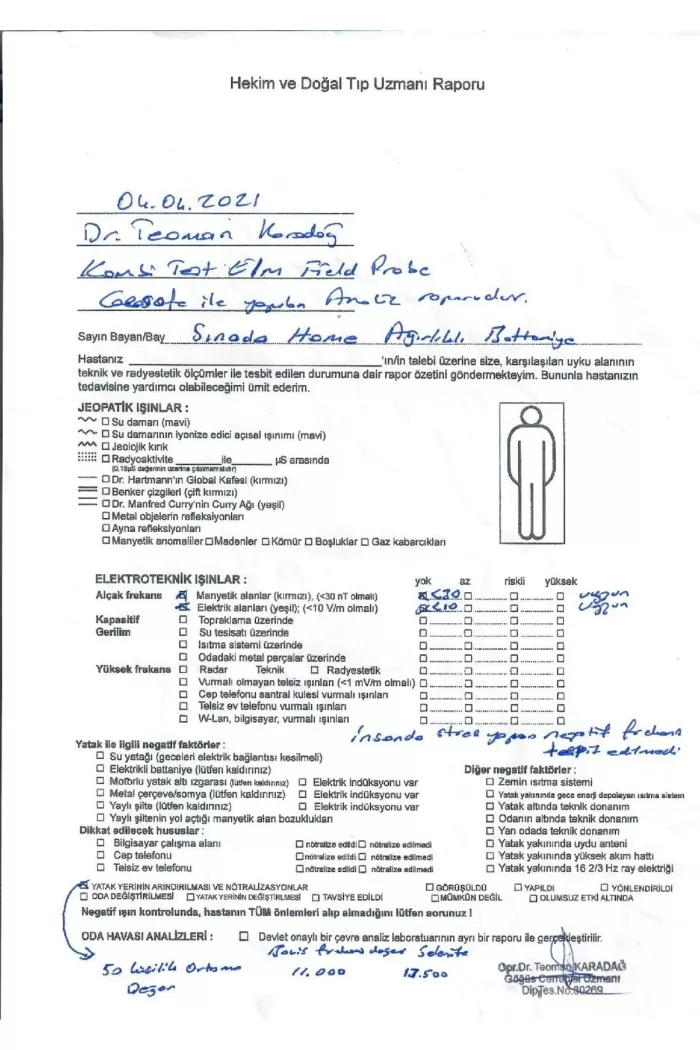 Hekim ve Doğal Tıp Uzmanı Raporu
04.04.2021
Dr. Teoman Karadağ
Kombi Test Elm Field Probe
ile yapılan Analiz raporudur.
Sayın Bayan/Bay Sinada Home Ağırlıklı Battaniye
Hastanız 'ın/in talebi üzerine size, karşılaşılan uyku alanının
teknik ve radyestetik ölçümler ile tesbit edilen durumuna dair rapor özetini göndermekteyim. Bununla hastanızın
tedavisine yardımcı olabileceğimi ümit ederim.
JEOPATİK IŞINLAR :
Su damarı (mavi)
Su damarının iyonize edici açısal ışınımı (mavi)
Jeolojik kırık
Radyoaktivite ile µS arasında
(0,18µS değerinin üzerine çıkılmamalıdır)
Dr. Hartmann'ın Global Kafesi (kırmızı)
Benker çizgileri (çift kırmızı)
Dr. Manfred Curry'nin Curry Ağı (yeşil)
Metal objelerin refleksiyonları
Ayna refleksiyonları
Manyetik anomaliler Madenler Kömür Boşluklar Gaz kabarcıkları
ELEKTROTEKNİK IŞINLAR : yok az riskli yüksek
Alçak frekans Manyetik alanlar (kırmızı), (<30 nT olmalı) <30 uygun
Elektrik alanları (yeşil); (<10 V/m olmalı) <10 uygun
Kapasitif Topraklama üzerinde
Gerilim Su tesisatı üzerinde
Isıtma sistemi üzerinde
Odadaki metal parçalar üzerinde
Yüksek frekans Radar Teknik Radyestetik
Vurmalı olmayan telsiz ışınları (<1 mV/m olmalı)
Cep telefonu santral kulesi vurmalı ışınları
Telsiz ev telefonu vurmalı ışınları
W-Lan, bilgisayar, vurmalı ışınları
insanda stres yapan negatif frekans
tespit edilmedi
Yatak ile ilgili negatif faktörler :
Su yatağı (geceleri elektrik bağlantısı kesilmeli)
Elektrikli battaniye (lütfen kaldırınız)
Motorlu yatak altı ızgarası (lütfen kaldırınız) Elektrik indüksyonu var
Metal çerçeve/somya (lütfen kaldırınız) Elektrik indüksyonu var
Yaylı şilte (lütfen kaldırınız) Elektrik indüksyonu var
Yaylı şiltenin yol açtığı manyetik alan bozuklukları
Diğer negatif faktörler :
Zemin ısıtma sistemi
Yatak yakınında gece enerji depolayan ısıtma sistem
Yatak altında teknik donanım
Odanın altında teknik donanım
Yan odada teknik donanım
Yatak yakınında uydu anteni
Yatak yakınında yüksek akım hattı
Yatak yakınında 16 2/3 Hz ray elektriği
Dikkat edilecek hususlar :
Bilgisayar çalışma alanı nötralize edildi nötralize edilmedi
Cep telefonu nötralize edildi nötralize edilmedi
Telsiz ev telefonu nötralize edildi nötralize edilmedi
YATAK YERİNİN ARINDIRILMASI VE NÖTRALİZASYONLAR GÖRÜŞÜLDÜ YAPILDI YÖNLENDİRİLDİ
ODA DEĞİŞTİRİLMESİ YATAK YERİNİN DEĞİŞTİRİLMESİ TAVSİYE EDİLDİ MÜMKÜN DEĞİL OLUMSUZ ETKİ ALTINDA
Negatif ışın kontrolunda, hastanın TÜM önlemleri alıp almadığını lütfen sorunuz !
ODA HAVASI ANALİZLERİ : Devlet onaylı bir çevre analiz laboratuarının ayrı bir raporu ile gerçekleştirilir.
Bovis frekans değer
50 kişilik Ortama 11.000 17.500
Değer
Opr.Dr. Teoman KARADAĞ
Göğüs Cerrahisi Uzmanı
Dip.Tes.No.80269